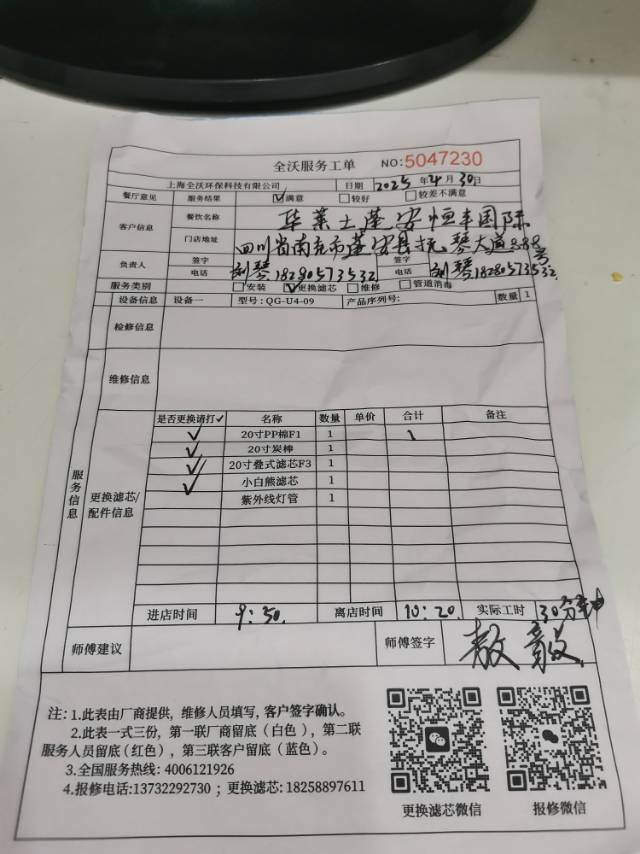 全沃服务工单 NO:5047230
上海全沃环保科技有限公司 日期 2025年4月30日
餐厅意见 服务结果 ☑满意 □较好 □较差不满意
客户信息 餐饮名称 华莱士蓬安恒丰国际
门店地址 四川省南充市蓬安县抚琴大道888号
负责人 签字 刘琴 签字 刘琴
电话 18280573532 电话 18280573532
服务类别 □安装 ☑更换滤芯 □维修 □管道消毒
设备信息 设备一 型号:QG-U4-09 产品序列号: 数量 1
检修信息
维修信息
服务信息
更换滤芯/配件信息
是否更换请打✓ 名称 数量 单价 合计 备注
✓ 20寸PP棉F1 1 1
✓ 20寸炭棒 1
✓ 20寸叠式滤芯F3 1
✓ 小白熊滤芯 1
紫外线灯管 1
进店时间 9:50. 离店时间 10:20. 实际工时 30分钟
师傅建议 师傅签字
注:1.此表由厂商提供，维修人员填写，客户签字确认。
2.此表一式三份，第一联厂商留底（白色），第二联
服务人员留底(红色)，第三联客户留底（蓝色）。
3.全国服务热线: 4006121926
4.报修电话:13732292730；更换滤芯: 18258897611
更换滤芯微信 报修微信